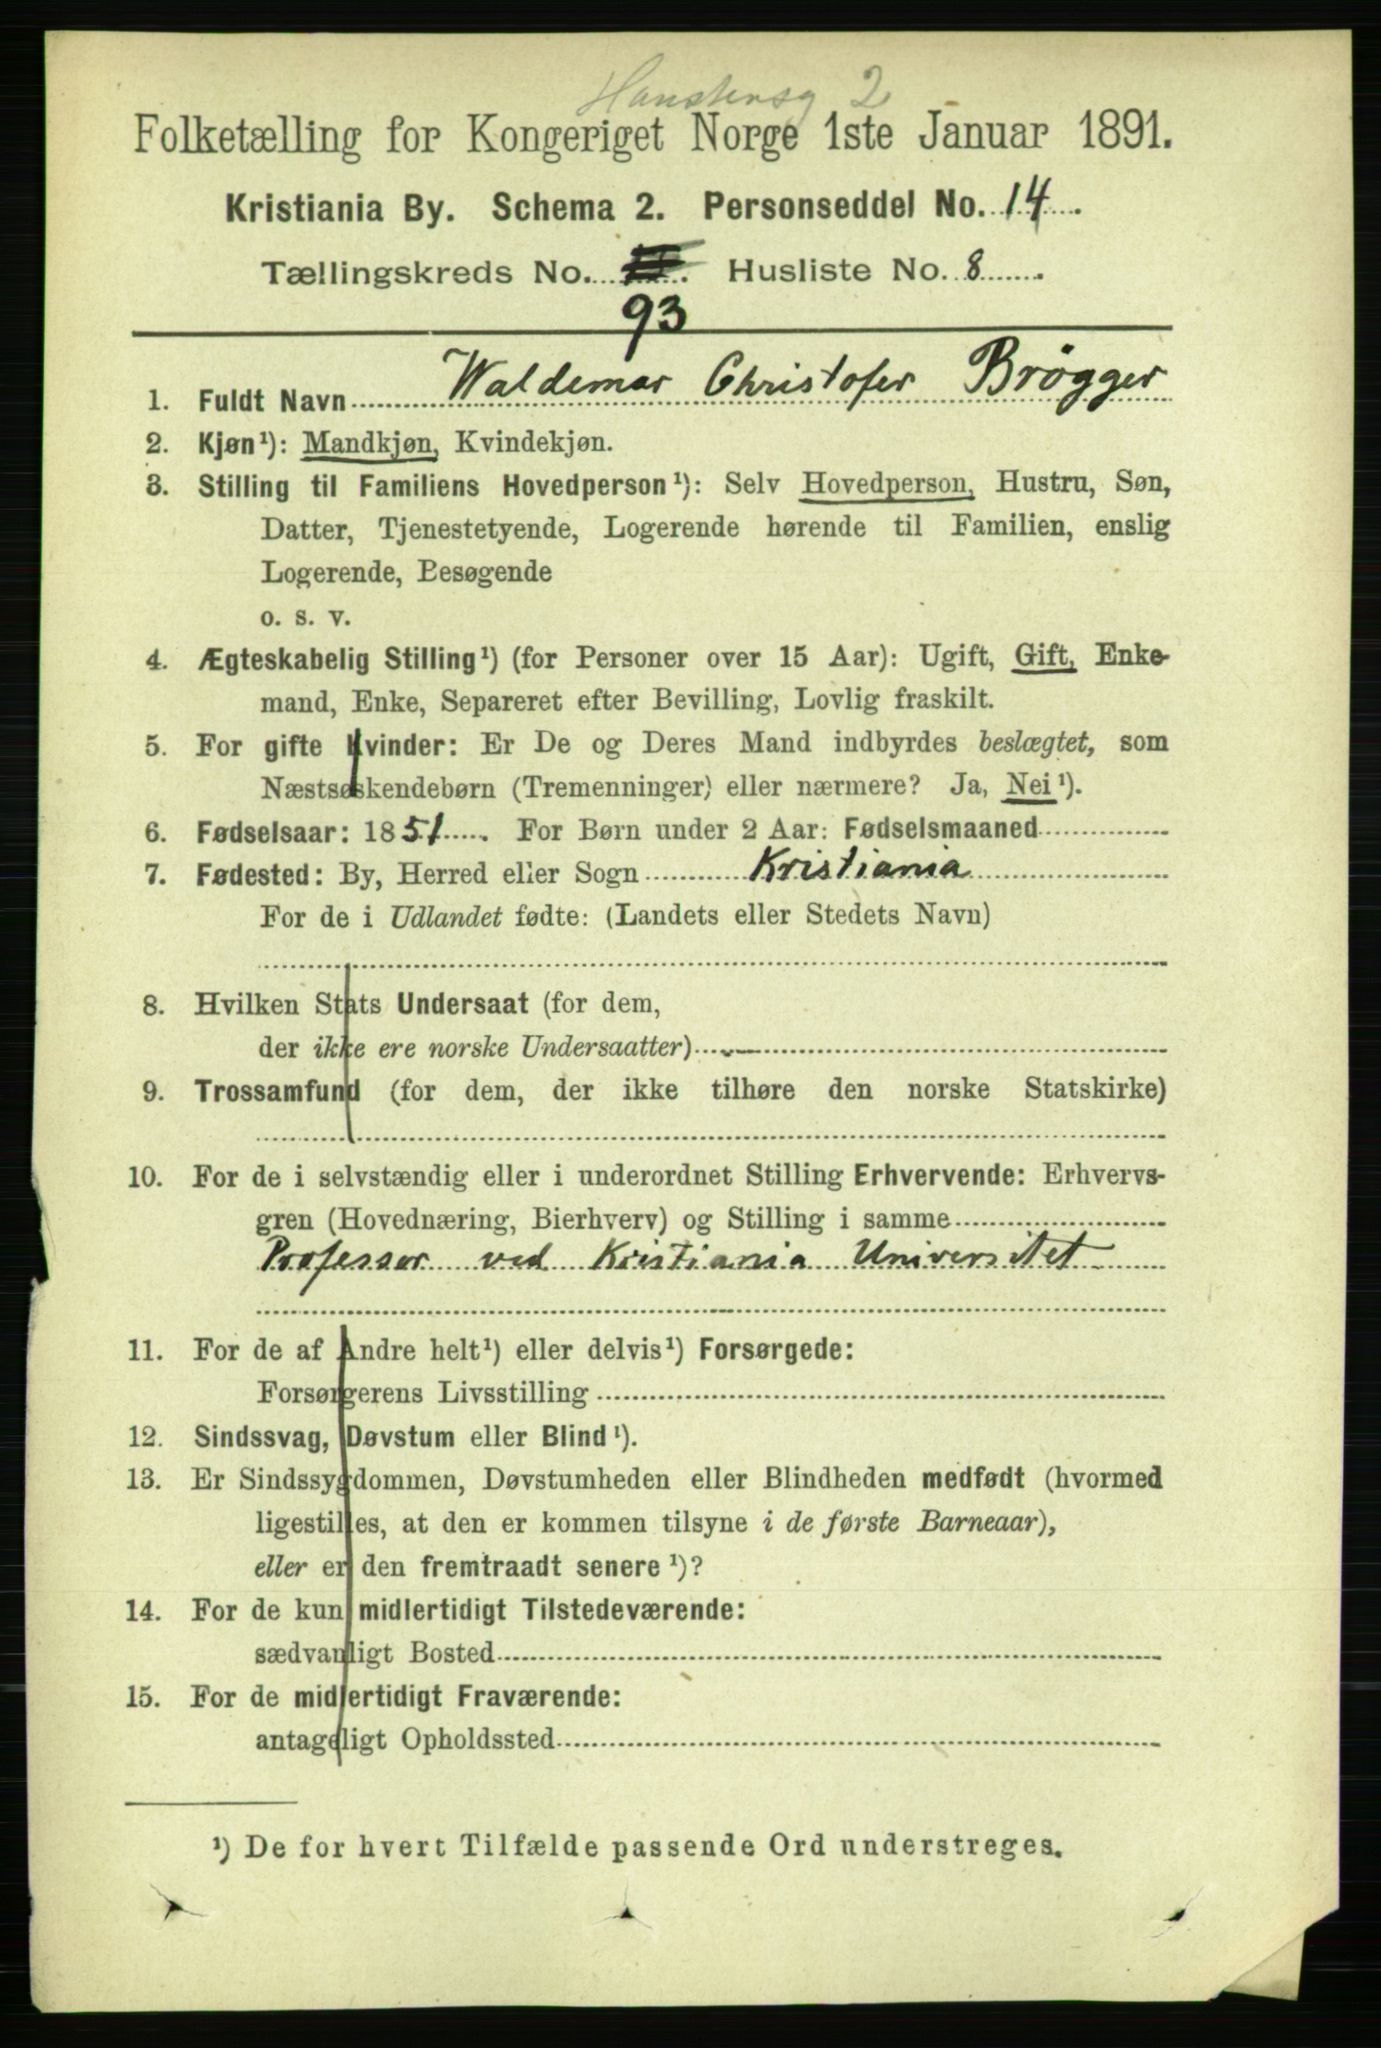 Hansteensg 2
Folketælling for Kongeriget Norge 1ste Januar 1891.
Kristiania By. Schema 2. Personseddel No. 14.
Tællingskreds No. . Husliste No. 8.
93
1. Fuldt Navn Waldemar Christofer Brøgger
2. Kjøn¹): Mandkjøn, Kvindekjøn.
3. Stilling til Familiens Hovedperson¹): Selv Hovedperson, Hustru, Søn,
Datter, Tjenestetyende, Logerende hørende til Familien, enslig
Logerende, Besøgende
o. s. v.
4. Ægteskabelig Stilling¹) (for Personer over 15 Aar): Ugift, Gift, Enke-
mand, Enke, Separeret efter Bevilling, Lovlig fraskilt.
5. For gifte Kvinder: Er De og Deres Mand indbyrdes beslægtet, som
Næstsøskendebørn (Tremenninger) eller nærmere? Ja, Nei¹).
6. Fødselsaar: 1851. For Børn under 2 Aar: Fødselsmaaned
7. Fødested: By, Herred eller Sogn Kristiania
For de i Udlandet fødte: (Landets eller Stedets Navn)
8. Hvilken Stats Undersaat (for dem,
der ikke ere norske Undersaatter)
9. Trossamfund (for dem, der ikke tilhøre den norske Statskirke)
10. For de i selvstændig eller i underordnet Stilling Erhvervende: Erhvervs-
gren (Hovednæring, Bierhverv) og Stilling i samme
Professor ved Kristiania Universitet
11. For de af Andre helt¹) eller delvis¹) Forsørgede:
Forsørgerens Livsstilling
12. Sindssvag, Døvstum eller Blind¹).
13. Er Sindssygdommen, Døvstumheden eller Blindheden medfødt (hvormed
ligestilles, at den er kommen tilsyne i de første Barneaar),
eller er den fremtraadt senere¹)?
14. For de kun midlertidigt Tilstedeværende:
sædvanligt Bosted
15. For de midlertidigt Fraværende:
antageligt Opholdssted
¹) De for hvert Tilfælde passende Ord understreges.